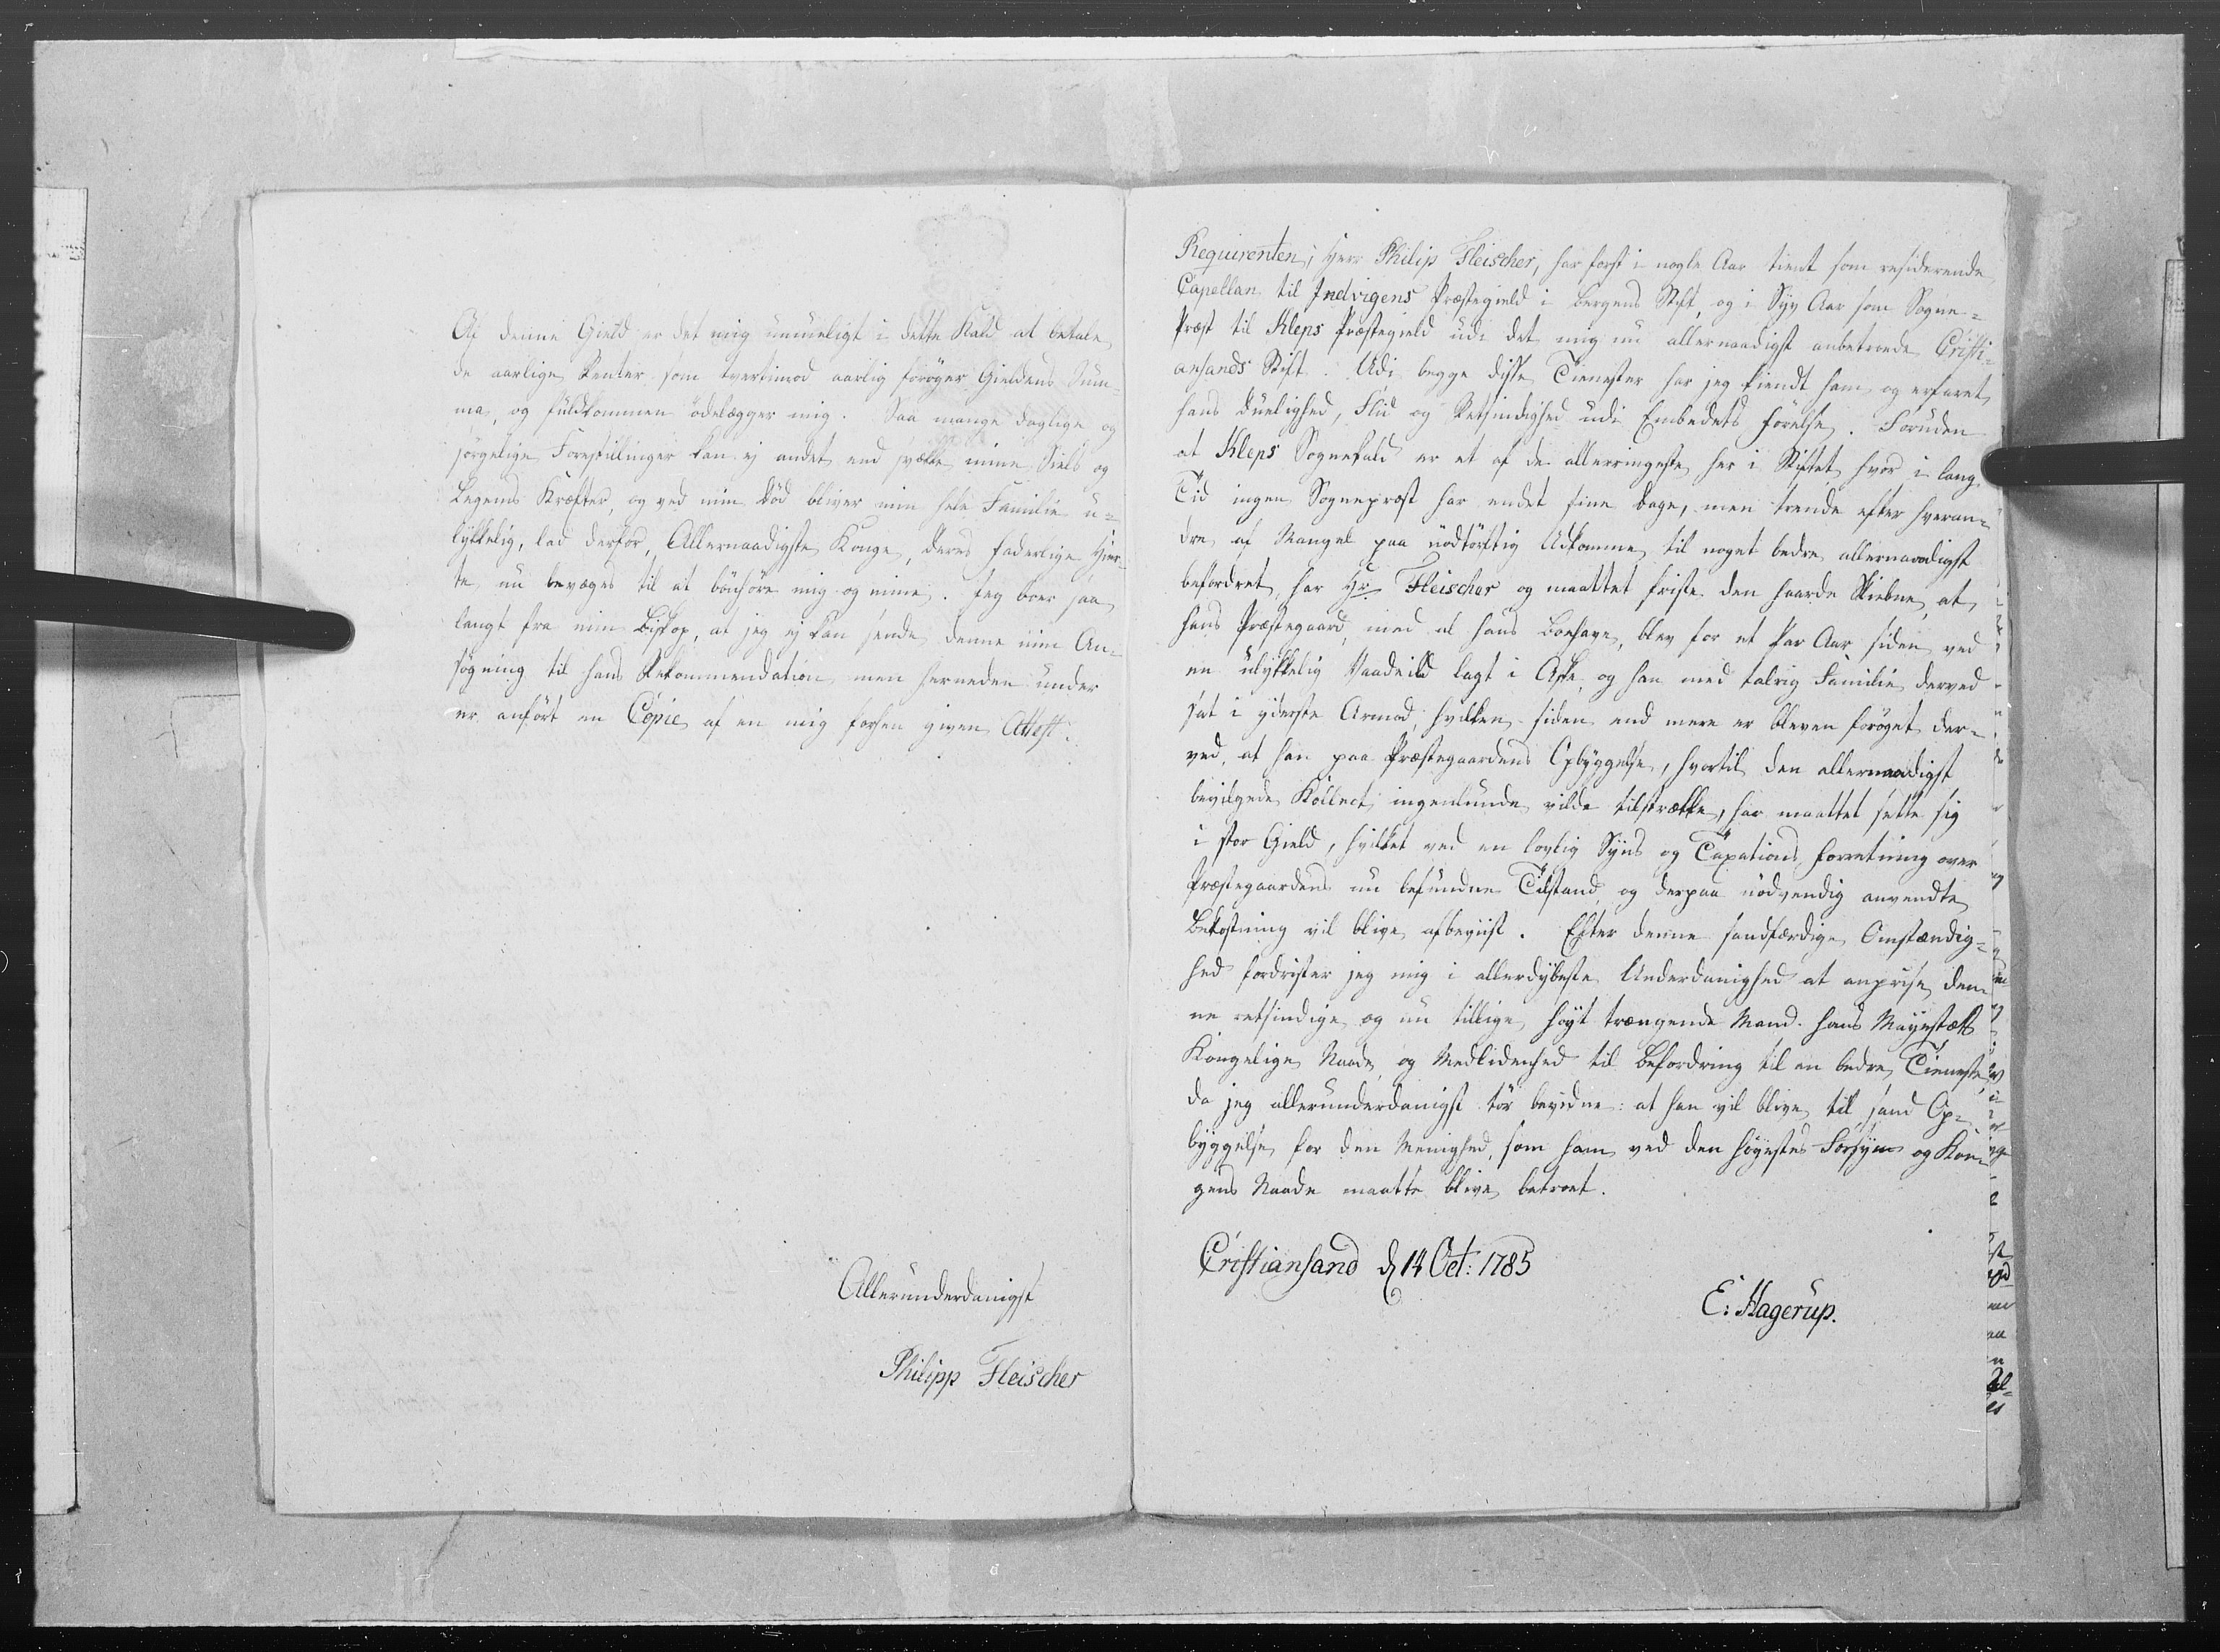 Af denne Gield er det mig umueligt i dette Kald at betale
de aarlige Renter som tvertimod aarlig forøger Gieldens Sum-
ma, og fuldkommen ödelægger mig. Saa mange daglige og
sörgelige Forestillinger kan ej andet end svække mine Siels og
Legems Kræfter, og ved min Död bliver min hele Familie u-
lykkelig, lad derfor, Allernaadigste Konge, deres faderlige Hier-
te nu bevæges til at bönhöre mig og mine. Jeg boer saa
langt fra min Biskop, at jeg ej kan sende denne min An-
sögning til hans Rekommendation men herneden under
er anfört en Copie af en mig forhen given Attest.
Allerunderdanigst
Philipp Fleischer
Requirenten, Herr Philip Fleischer, har först i nogle Aar tient som residerende
Capellan til Indvigens Præstegield i Bergens Stift, og i Syv Aar som Sogne-
Præst til Kleps Præstegield udi det mig nu allernaadigst anbetroede Cristi-
ansands Stift. Udi begge disse Tienester har jeg kiendt ham og erfaret
hans Duelighed, Flid og Retsindighed udi Embedets Förelse. Foruden
at Kleps Sognekald er et af de allerringeste her i Stiftet, hvor i lang
Tid ingen Sognepræst har endet sine Dage, men trende efter hveran-
dre af Mangel paa nödtörftig Udkomme til noget bedre allernaadigst
befordret, har Hr Fleischer og maattet friste den haarde Skiebne, at
hans Præstegaard, med al hans Boehave, blev for et Par Aar siden ved
en ulykkelig Vaadeild lagt i Aske, og han med talrig Familie derved
sat i yderste Armod, hvilken siden end mere er bleven forøget der-
ved, at han paa Præstegaardens Opbyggelse, hvortil den allernaadigst
bevilgede Kollect ingenlunde vilde tilstrække, har maattet sette sig
i stor Gield, hvilket ved en lovlig Syns og Taxations Forretning over
Præstegaardens nu befundne Tilstand, og derpaa nödvendig anvendte
Bekostning vil blive afbeviist. Efter denne sandfærdige Omstændig-
hed fordrister jeg mig i allerdybeste Underdanighed at anprise den-
ne retsindige og nu tillige höyt trængende Mand hans Mayestæts
Kongelige Naade og Medlidenhed til Befordring til en bedre Tieneste
da jeg allerunderdanigst tör bevidne: at han vil blive til sand Op-
byggelse for den Menighed, som ham ved den Höyestes Forsyn og Kon-
gens Naade maatte blive betroet.
Cristiansand d 14 Oct: 1785
E: Hagerup.